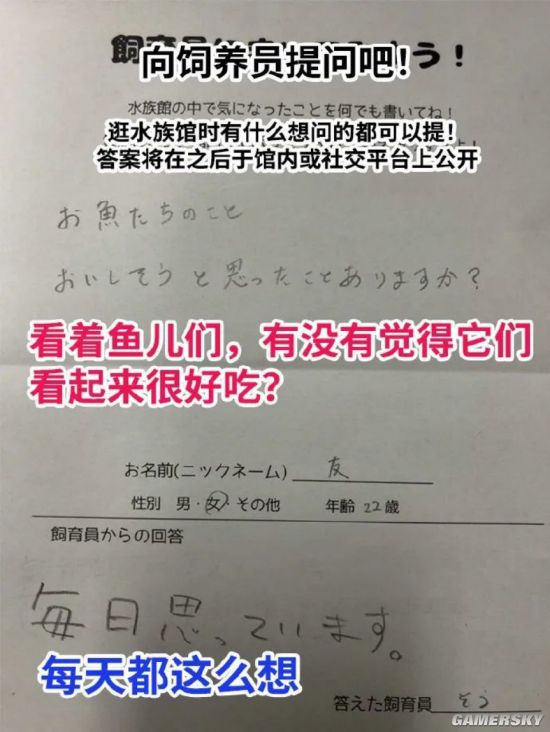 飼育員
う！
向饲养员提问吧!
水族館の中で気になったことを何でも書いてね！
逛水族馆时有什么想问的都可以提!
答案将在之后于馆内或社交平台上公开
お魚たちのこと
おいしそうと思ったことありますか？
看着鱼儿们，有没有觉得它们
看起来很好吃?
お名前(ニックネーム) 友
性別 男・女・その他 年齢 22歳
飼育員からの回答
毎日思っています。
每天都这么想
答えた飼育員 そう
GAMERSKY